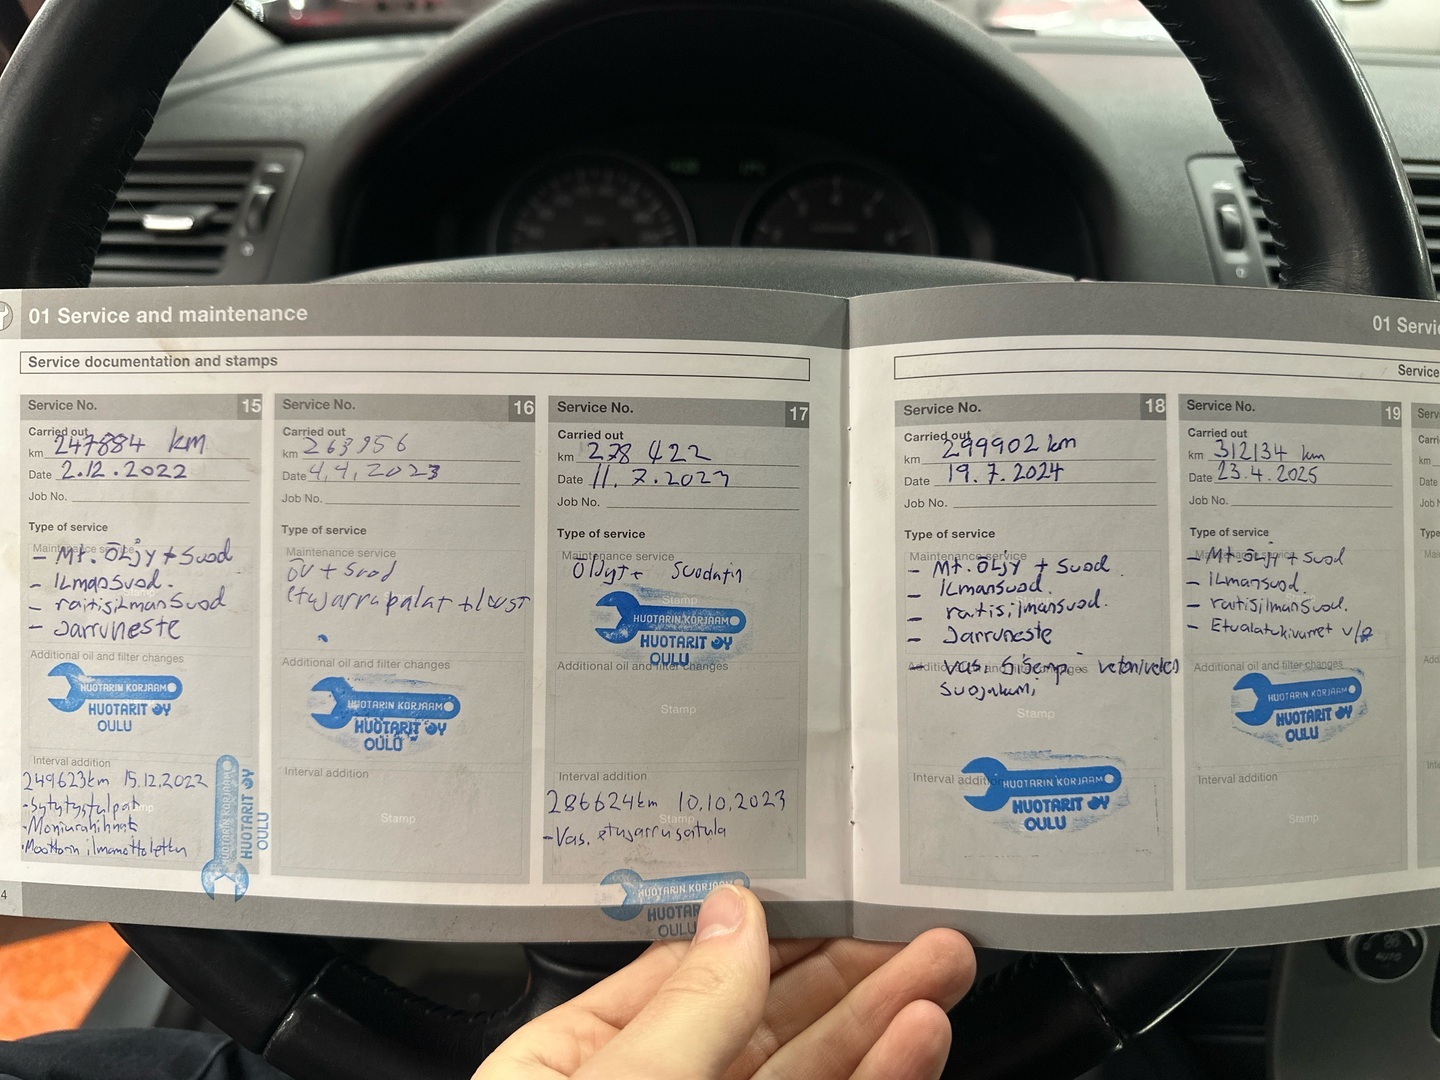 01 Service and maintenance
Service documentation and stamps
Service No. 15
Carried out
km 247884 km
Date 2.12.2022
Job No.
Type of service
Maintenance service
- Mt. ÖLjy + suod
- ILmansuod.
- raitisiLmansuod
- Jarruneste
Additional oil and filter changes
HUOTARIN KORJAAMO
HUOTARIT OY
OULU
Interval addition
249623km 15.12.2022
- Sytytystulpat
- Moniurahihnat
- Moottorin ilmanottoletku
Stamp
HUOTARIN KORJAAMO
HUOTARIT OY
OULU
4
Service No. 16
Carried out
km 263956
Date 4.4.2023
Job No.
Type of service
Maintenance service
öv + suod
etujarrupalat +
Additional oil and filter changes
HUOTARIN KORJAAMO
HUOTARIT OY
OULU
Interval addition
Stamp
Service No. 17
Carried out
km 278 422
Date 11.7.2023
Job No.
Type of service
Maintenance service
suodatin
Stamp
HUOTARIN KORJAAMO
HUOTARIT OY
OULU
Additional oil and filter changes
Stamp
Interval addition
286624km 10.10.2023
Stamp
- Vas. etujarrusatula
HUOTARIN KORJAAMO
HUOTAR
OULU
01 Servi
Service
Service No. 18
Carried out
km 299902 km
Date 19.7.2024
Job No.
Type of service
Maintenance service
- Mt. ÖLjy + suod
- ILmansuod.
- raitisilmansuod.
- Jarruneste
Additional oil and filter changes
- Vas. Sisempi vetonivelen
suojakumi
Stamp
Interval addition
HUOTARIN KORJAAMO
HUOTARIT OY
OULU
Service No. 19
Carried out
km 312134 km
Date 23.4.2025
Job No.
Type of service
Maintenance service
- Mt. öLjy + suod
- iLmansuod.
- raitisilmansuod.
- Etualatukivarret v/o
Additional oil and filter changes
HUOTARIN KORJAAMO
HUOTARIT OY
OULU
Interval addition
Stamp
AUTO